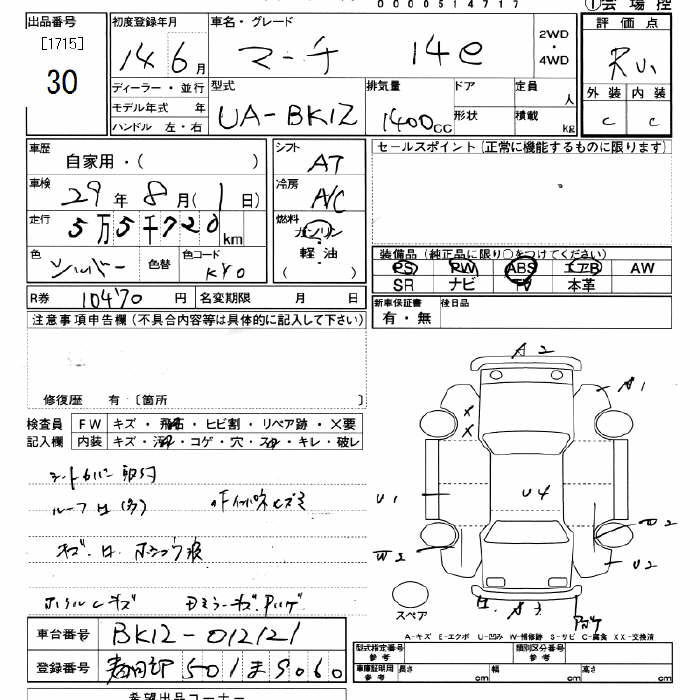 0000514717
①会場控
出品番号
[1715]
30
初度登録年月
14 6月
車名・グレード
マーチ 14e
2WD
・
4WD
評価点
RV1
外装 内装
C C
ディーラー・並行
モデル年式 年
ハンドル 左・右
型式
UA-BK12
排気量
1400cc
ドア
形状
定員
人
積載
kg
車歴
自家用・( )
車検
29年 8月( 1日)
走行
5万5千720km
色
シルバー
色替
色コード
KY0
シフト
AT
冷房
A/C
燃料
ガソリン
・
軽油
( )
セールスポイント(正常に機能するものに限ります)
装備品(純正品に限り○をつけてください)
PS PW ABS エアB AW
SR ナビ TV 本革
R券 10470円 名変期限 月 日
新車保証書
有・無
後日品
注意事項申告欄(不具合内容等は具体的に記入して下さい)
修復歴 有〔箇所 〕
検査員 FW キズ・飛石・ヒビ割・リペア跡・X要
記入欄 内装 キズ・汚れ・コゲ・穴・スレ・キレ・破レ
シートカバー取付
ルーフ
キズ
A2
A1
X
X
U1
U4
W2
U2
A3
スペア
A-キズ E-エクボ U-凹み W-補修跡 S-サビ C-腐食 XX-交換済
車台番号 BK12-012121
登録番号 春日部 501ま5060
型式指定番号
参考
類別区分番号
参考
車庫証明用
参考
長さ cm 幅 cm 高さ cm
希望出品コーナー